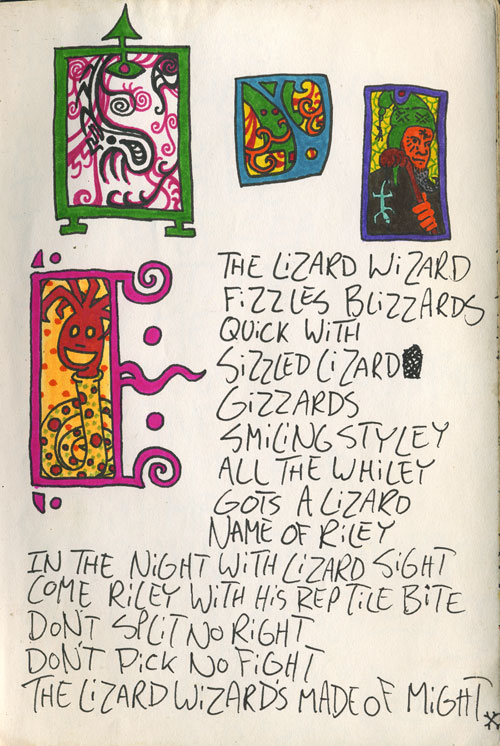 THE LIZARD WIZARD
FIZZLES BLIZZARDS
QUICK WITH
SIZZLED LIZARD
GIZZARDS
SMILING STYLEY
ALL THE WHILEY
GOTS A LIZARD
NAME OF RILEY
IN THE NIGHT WITH LIZARD SIGHT
COME RILEY WITH HIS REPTILE BITE
DON'T SPLIT NO RIGHT
DON'T PICK NO FIGHT
THE LIZARD WIZARD'S MADE OF MIGHT